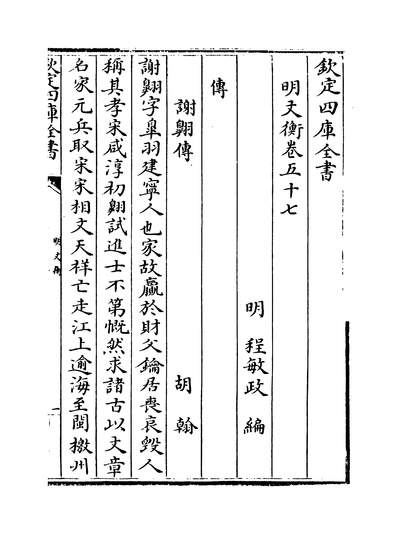 欽定四庫全書
明文衡卷五十七
明 程敏政 編
傳
謝翺傳 胡翰
謝翺字臯羽建寧人也家故贏於財父鑰居喪哀毀人
稱其孝宋咸淳初翺試進士不第慨然求諸古以文章
名家元兵取宋宋相文天祥亡走江上逾海至閩檄州
欽定四庫全書
明文衡
一